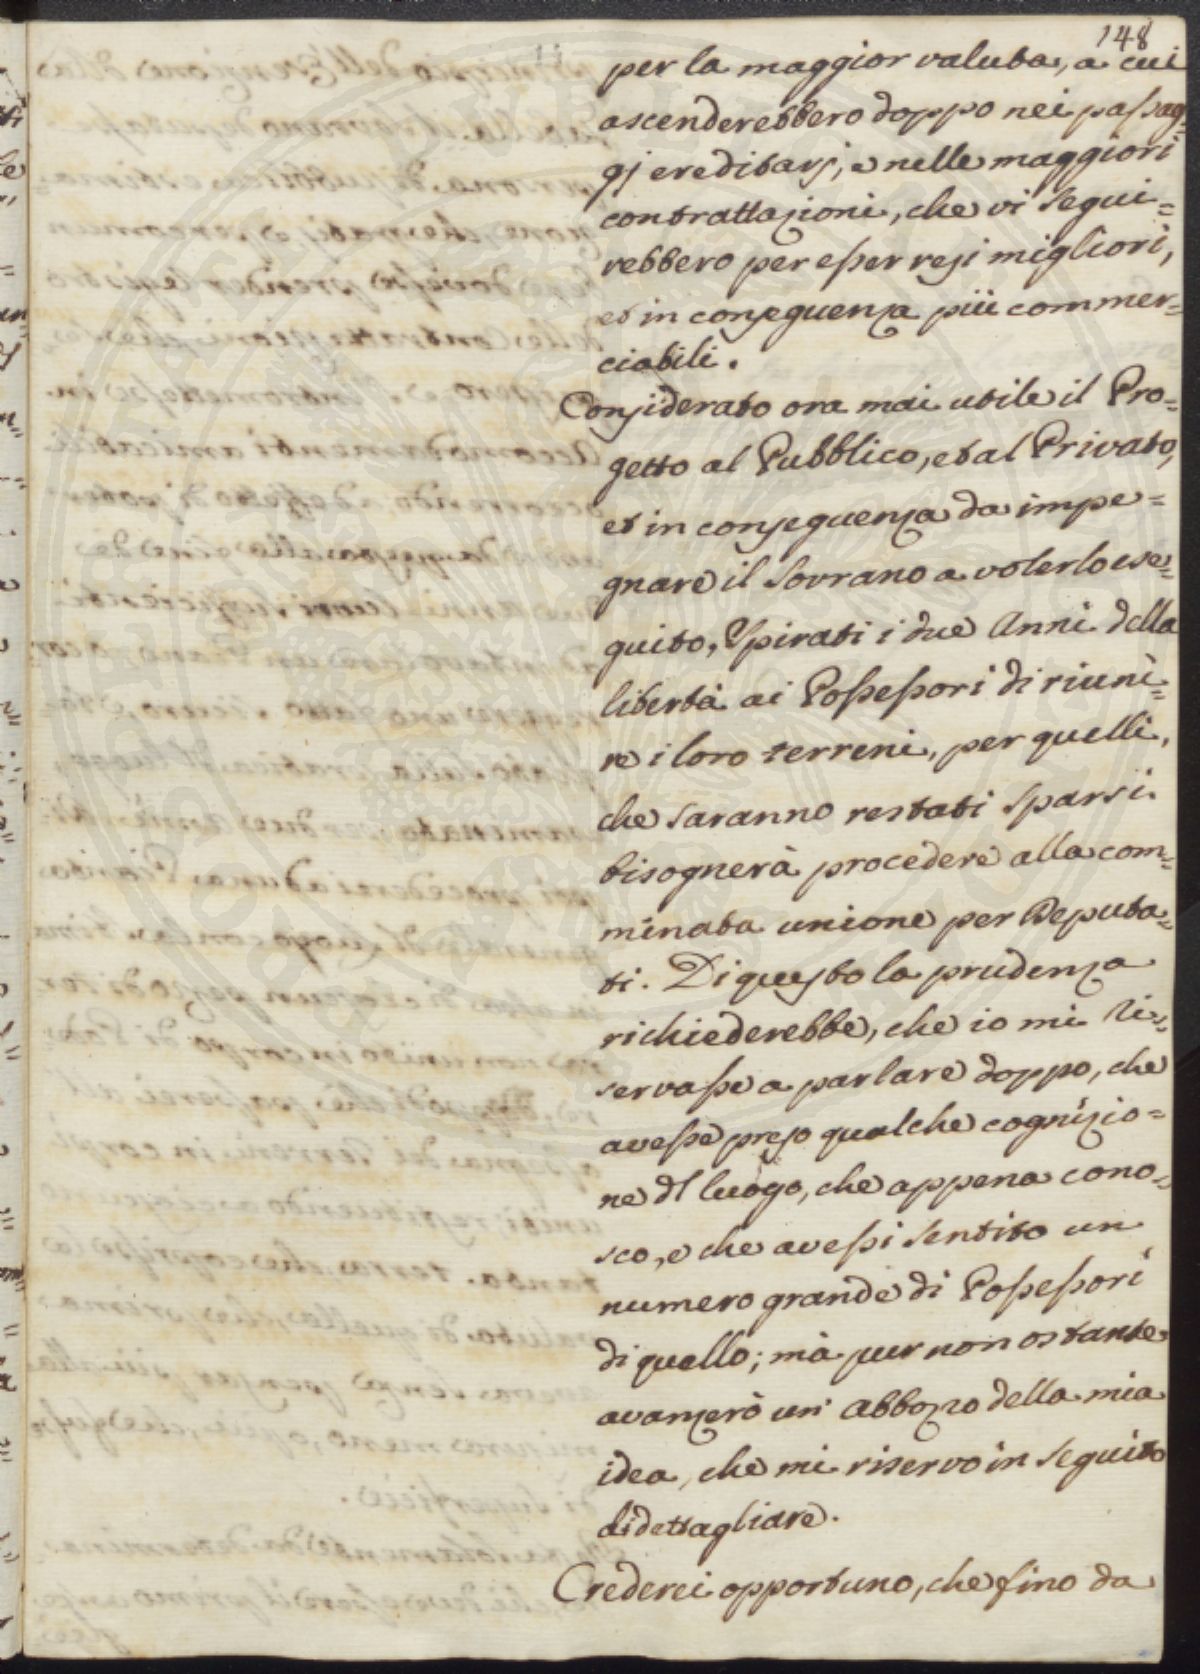 148
per la maggior valuta, a cui
ascenderebbero doppo nei passag=
gj ereditarj, e nelle maggiori
contrattazioni, che vi segui=
rebbero per esser resi migliori,
et in conseguenza più commer=
ciabili.
Considerato ora mai utile il Pro=
getto al Pubblico, et al Privato,
et in conseguenza da impe=
gnare il Sovrano a volerlo ese=
guito, Spirati i due Anni della
libertà ai Possessori di riuni=
re i loro terreni, per quelli,
che saranno restati sparsi
bisognerà procedere alla com=
minata unione per Deputa=
ti. Di questo la prudenza
richiederebbe, che io mi ri=
servasse a parlare doppo, che
avesse preso qualche cognizio=
ne dl luogo, che appena cono=
sco, e che avessi sentito un
numero grande di Possessori
di quello; mà pur non ostante
avanzerò un' abbozzo della mia
idea, che mi riservo in seguito
di dettagliare.
Crederei opportuno, che fino da